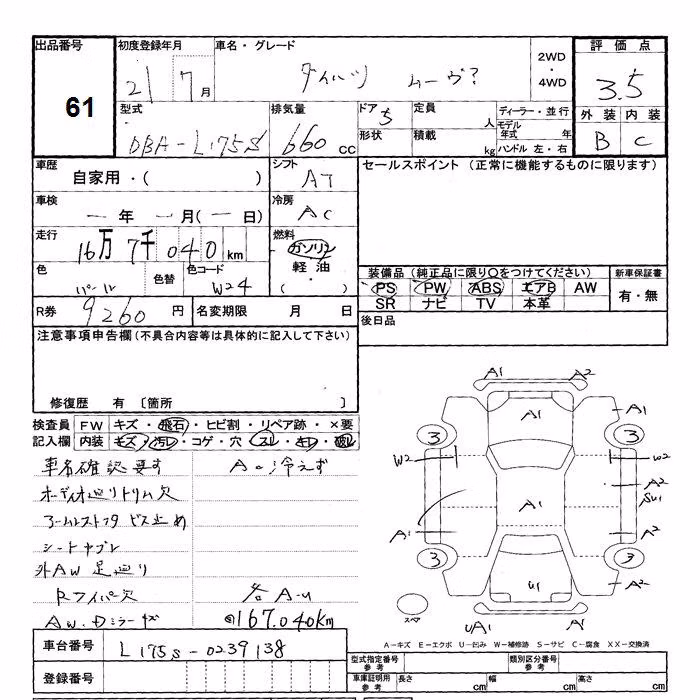 出品番号 61
初度登録年月 21 7月
車名・グレード ダイハツ ムーヴ?
2WD・4WD
評価点 3.5
外装 B 内装 C
型式 DBA-L175S
排気量 660cc
ドア 5
形状
定員 人
積載 kg
ディーラー・並行
モデル年式 年
ハンドル 左・右
車歴 自家用・( )
シフト AT
車検 ー年 ー月(ー日)
冷房 AC
走行 16万7千040km
燃料 ガソリン・軽油・( )
色 パール 色替
色コード W24
R券 9260円
名変期限 月 日
セールスポイント (正常に機能するものに限ります)
装備品 (純正品に限り○をつけてください)
PS PW ABS エアB AW
SR ナビ TV 本革
新車保証書 有・無
後日品
注意事項申告欄 (不具合内容等は具体的に記入して下さい)
修復歴 有 〔箇所 〕
検査員記入欄
FW キズ・飛石・ヒビ割・リペア跡・×要
内装 キズ・汚レ・コゲ・穴・スレ・キレ・破レ
車名確認要す Ac冷えず
オーディオ廻りトリム欠
アームレストフタ ビス止め
シートヤブレ
外AW 足廻り
Rワイパー欠 各A-U
AW.Dミラーキズ 167.040km
車台番号 L175S-0239138
登録番号
A1 A2
A1 A1
3 3
W2 W2
A2
SU1
A1 A1 A2
3 3
U1 A2
スペア UA1 A1
A-キズ E-エクボ U-凹み W-補修跡 S-サビ C-腐食 XX-交換済
型式指定番号 参考
類別区分番号 参考
車庫証明用 参考
長さ cm 幅 cm 高さ cm